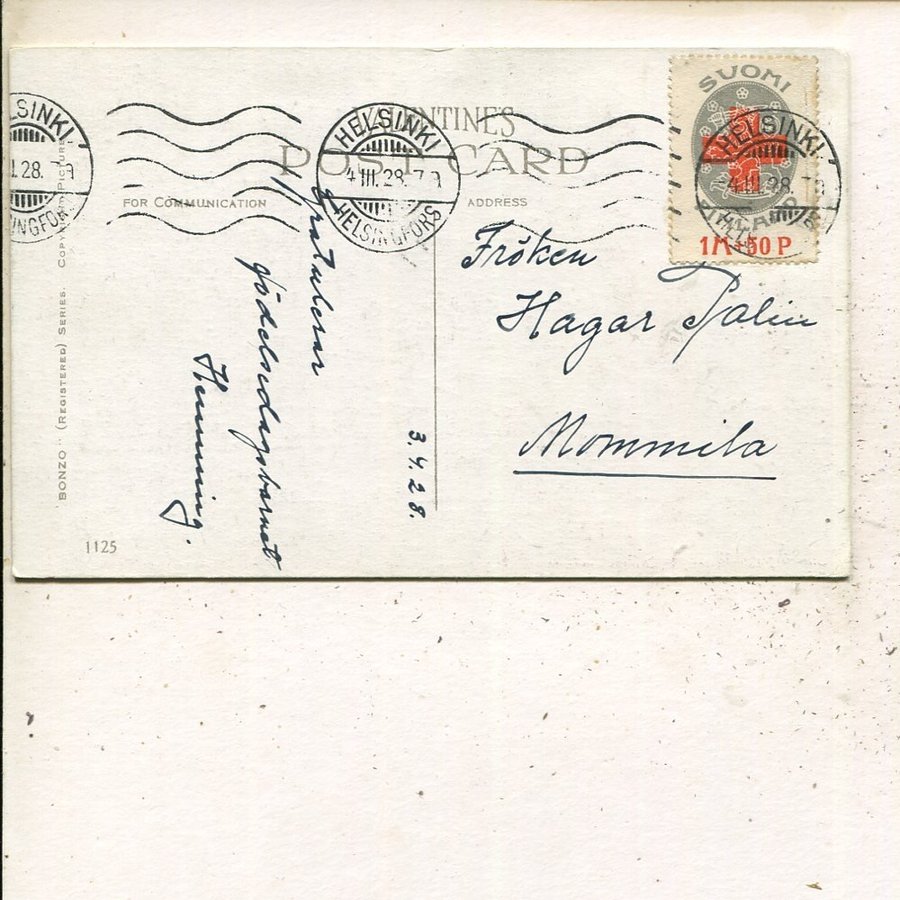 VALENTINE'S
POST CARD
FOR COMMUNICATION
ADDRESS
HELSINKI
4.III.28.7
HELSINGFORS
SUOMI
FINLAND
1M+50 P
HELSINKI
4.III.28.7
LSINKI
I.28.
INGFORS
BONZO" (REGISTERED) SERIES. COPYRIGHT PICTURE
1125
Gratulerar
födelsedagsbarnet
Henning.
3.4.28.
Fröken
Hagar Palin
Mommila